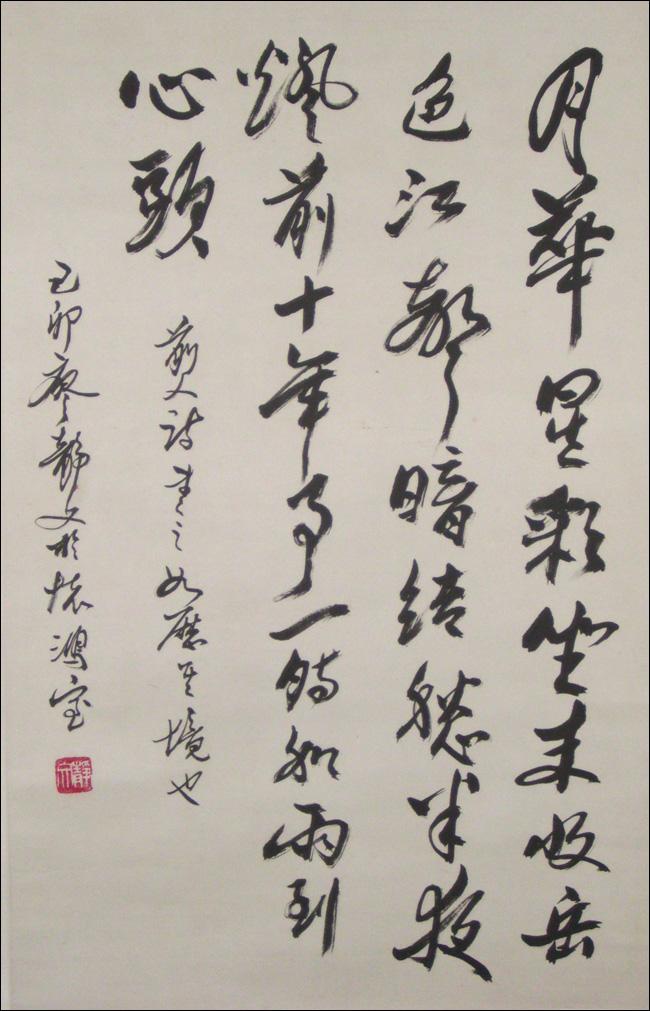 月華星彩坐来收岳
色江聲暗結愁半夜
燈前十年事一時和雨到
心頭
前人詩書之如歷其境也
己卯廖靜文於懷鴻室
靜文